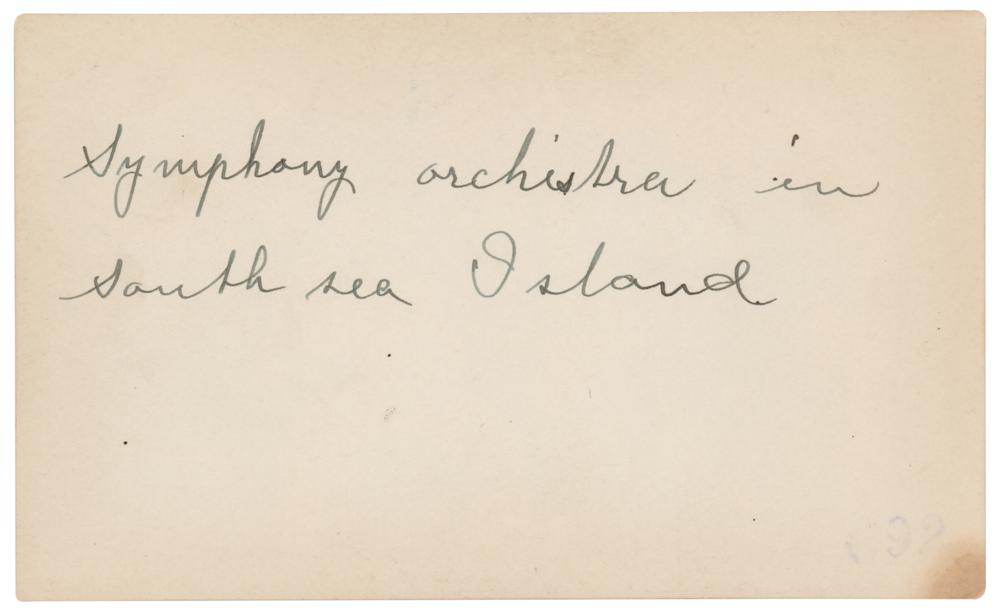 Symphony orchistra in
south sea Island